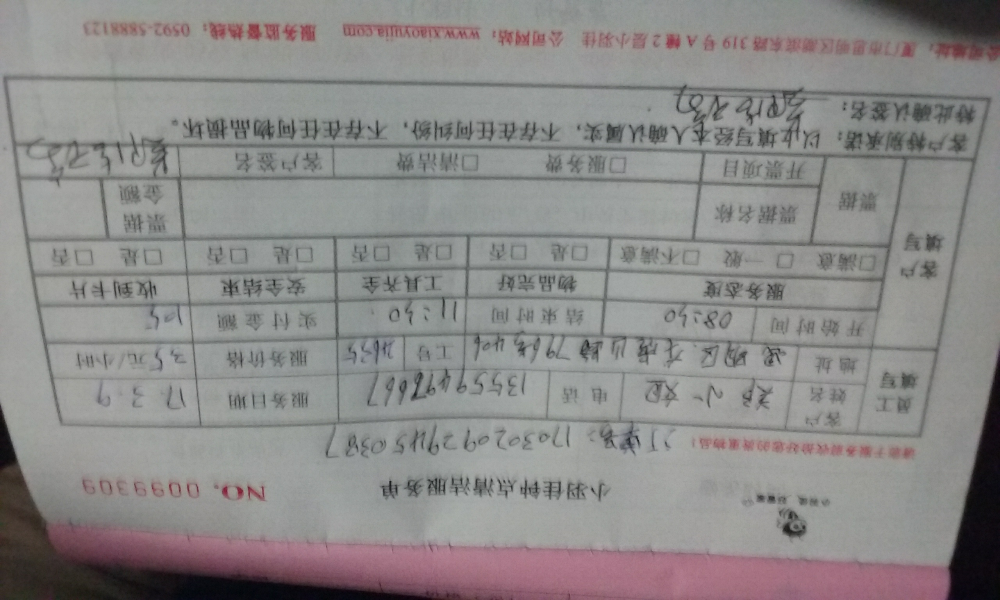 小羽佳钟点清洁服务单
NO. 0099309
请您于服务前收拾好您的贵重物品!
订单号: 17030209294450387
员工填写
客户姓名 小姐 电话 13559498667 服务日期 17.3.9
地址 思明区 796号406 工号 2635 服务价格 35元/小时
开始时间 08:30 结束时间 11:30 实付金额 105
客户填写
服务态度 物品完好 工具齐全 安全结束 收到卡片
□满意 □一般 □不满意 □是 □否 □是 □否 □是 □否 □是 □否
票据 票据名称 票据金额
开票项目 □服务费 □清洁费 客户签名
客户特别承诺: 以上填写经本人确认属实, 不存在任何纠纷, 不存在任何物品损坏。
特此确认签名:
公司地址: 厦门市思明区湖滨东路 319 号 A 幢 2 层小羽佳 公司网站: www.xiaoyujia.com 服务监督热线: 0592-5888123